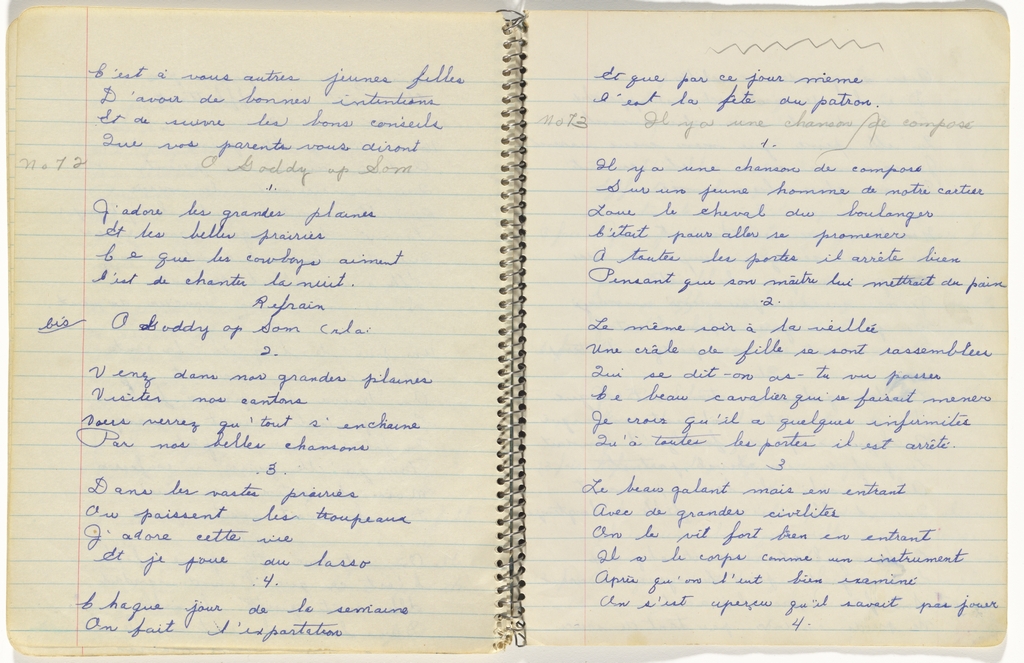 C'est à vous autres jeunes filles
D'avoir de bonnes intentions
Et de suivre les bons conseils
Que vos parents vous diront
No 72 O Goddy op Som
1.
J'adore les grandes plaines
Et les belles prairies
Ce que les cowboys aiment
C'est de chanter la nuit.
Refrain
bis O Goddy op Som
2.
Venez dans nos grandes plaines
Visiter nos cantons
Vous verrez qu'tout s'enchaine
Par nos belles chansons
3.
Dans les vastes prairies
Ou paissent les troupeaux
J'adore cette vie
Et je joue du lasso
4.
Chaque jour de la semaine
On fait l'exportation
Et que par ce jour même
C'est la fête du patron.
No 73 Il y a une chanson de compose
1.
Il y a une chanson de composé
Sur un jeune homme de notre cartier
Loue le cheval du boulanger
C'était pour aller se promener
A toutes les portes il arrête bien
Pensant que son maître lui mettrait du pain
2.
Le même soir à la veillée
Une crâle de fille se sont rassemblées
Qui se dit-on as-tu vu passer
Ce beau cavalier qui se faisait mener
Je crois qu'il a quelques infirmités
Qu'à toutes les portes il est arrêté.
3
Le beau galant mais en entrant
Avec de grandes civilités
On le vit fort bien en entrant
Il a le corps comme un instrument
Après qu'on l'eut bien examiné
On s'est aperçu qu'il savait pas jouer
4.